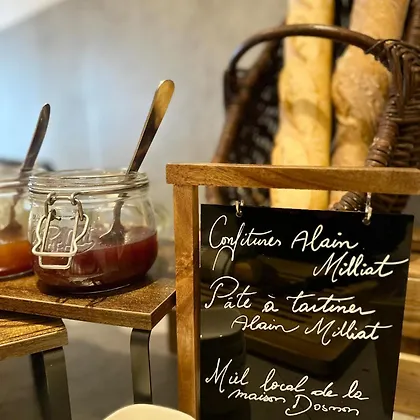 Confitures Alain
Milliat
Pâte à tartiner
Alain Milliat
Miel local de la
maison Dosnon